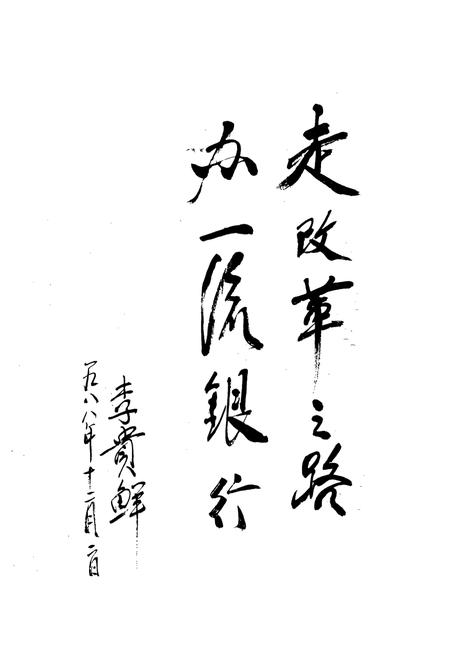 走改革之路
办一流銀行
李貴鮮
一九八八年十二月一日